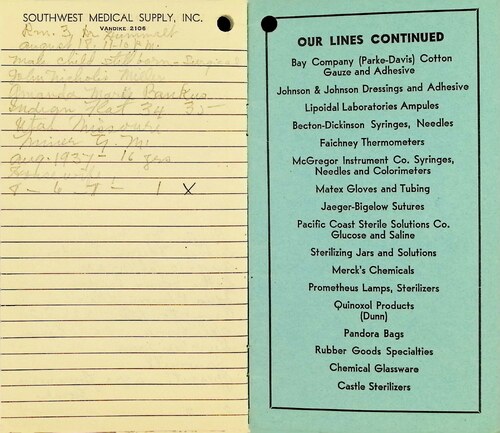 SOUTHWEST MEDICAL SUPPLY, INC.
VANDIKE 2106
Rm. 3, Dr
August 18,
Male child stillborn - Surgical
John Nicholis Miller
Amanda Marle Bankus
Indian Flat 34 35 -
Utal Missouri
Miner G. M.
Aug. 1937 - 16 yrs
8 - 6 - 7 - 1 X
OUR LINES CONTINUED
Bay Company (Parke-Davis) Cotton
Gauze and Adhesive
Johnson & Johnson Dressings and Adhesive
Lipoidal Laboratories Ampules
Becton-Dickinson Syringes, Needles
Faichney Thermometers
McGregor Instrument Co. Syringes,
Needles and Colorimeters
Matex Gloves and Tubing
Jaeger-Bigelow Sutures
Pacific Coast Sterile Solutions Co.
Glucose and Saline
Sterilizing Jars and Solutions
Merck's Chemicals
Prometheus Lamps, Sterilizers
Quinoxol Products
(Dunn)
Pandora Bags
Rubber Goods Specialties
Chemical Glassware
Castle Sterilizers